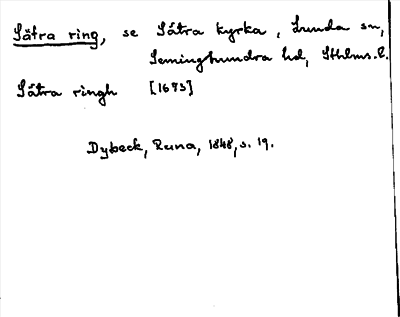 Sätra ring, se Sätra kyrka, Lunda sn,
Seminghundra hd, Sthlms. l.
Sätra ringh [1673]
Dybeck, Runa, 1848, s. 19.